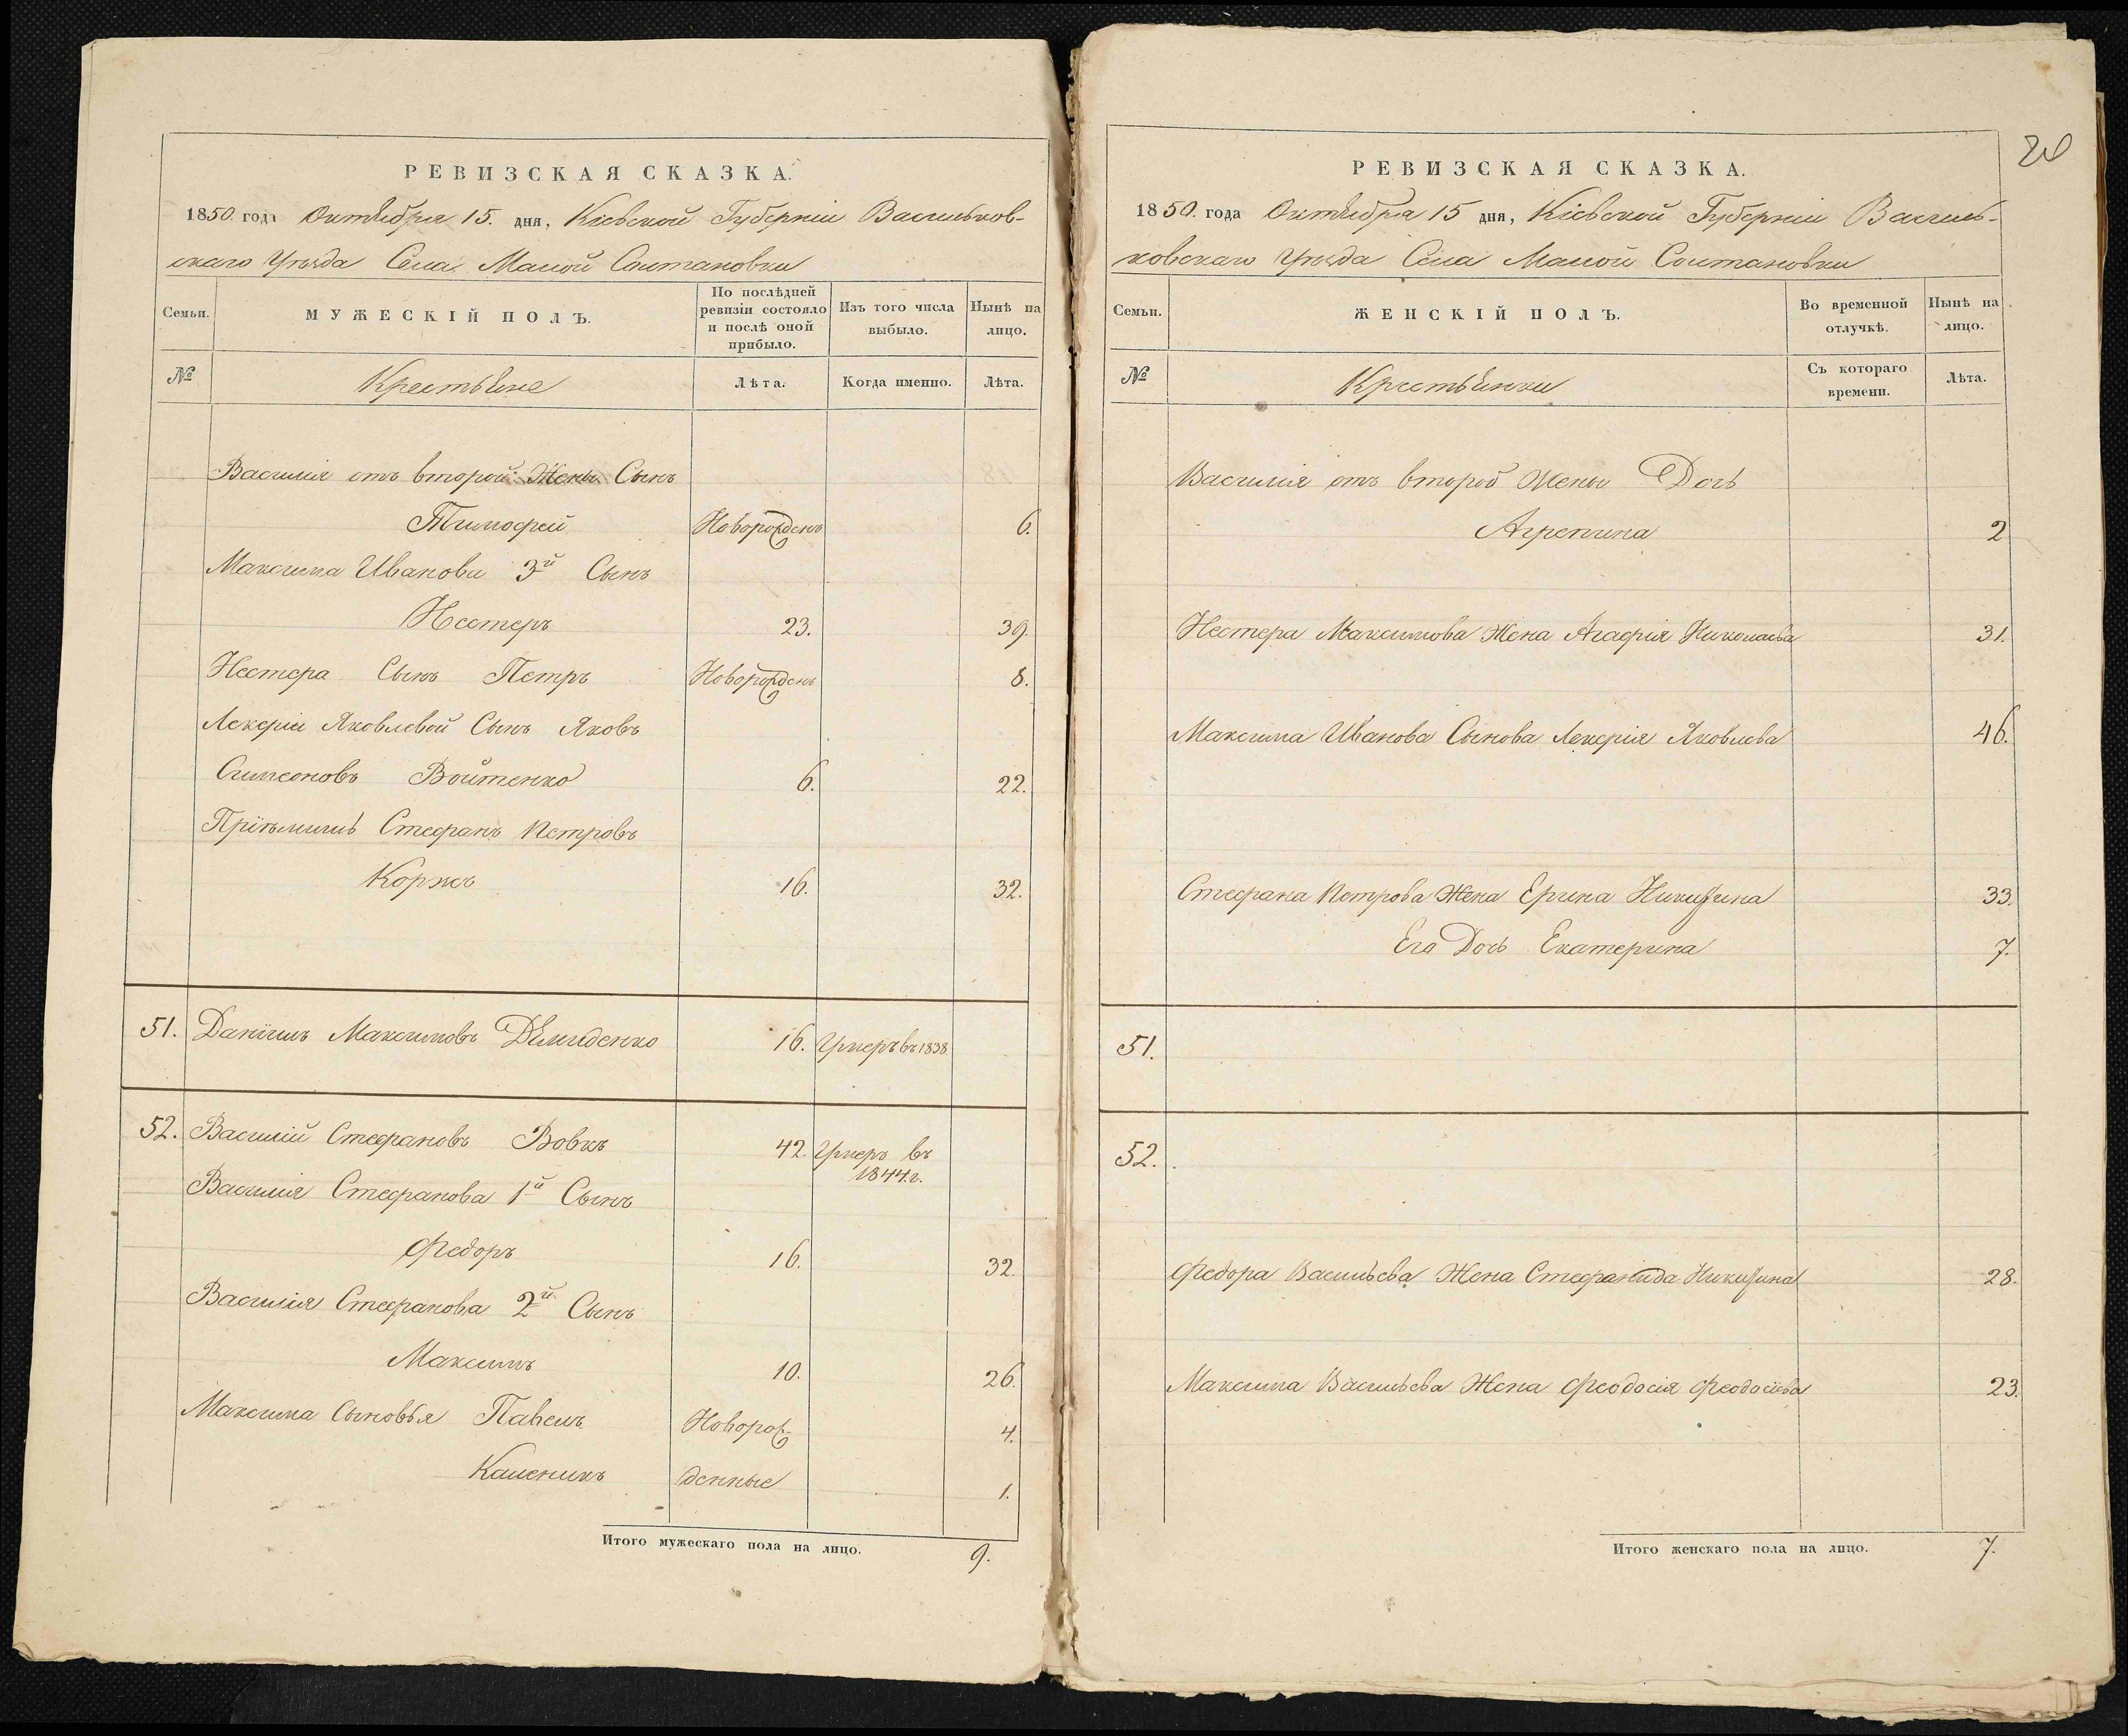 РЕВИЗСКАЯ СКАЗКА.
1850. года Октября 15. дня, Кіевской Губерніи Васильков-
скаго Уѣзда Села Малой Солтановки
Семьи.
МУЖЕСКІЙ ПОЛЪ.
По послѣдней ревизіи состояло и послѣ оной прибыло.
Изъ того числа выбыло.
Нынѣ на лицо.
№
Крестьяне
Лѣта.
Когда именно.
Лѣта.
Василія отъ второй Жены Сынъ
Тимофей Новорожденъ 6.
Максима Иванова 3й Сынъ
Нестеръ 23. 39.
Нестера Сынъ Петръ Новорожденъ 8.
Лекеріи Яковлевой Сынъ Яковъ
Симеоновъ Войтенко 6. 22.
Пріѣмышъ Стефанъ Петровъ
Коржъ 16. 32.
51. Даніилъ Максимовъ Демиденко 16. Умеръ въ 1838
52. Василій Стефановъ Вовкъ 42. Умеръ въ
1844 г.
Василія Стефанова 1й Сынъ
Федоръ 16. 32.
Василія Стефанова 2й Сынъ
Максимъ 10. 26.
Максима Сыновья Павелъ Новорож- 4.
Каленикъ денные 1.
Итого мужескаго пола на лицо. 9.
20
РЕВИЗСКАЯ СКАЗКА.
1850. года Октября 15 дня, Кіевской Губерніи Василь-
ковскаго Уѣзда Села Малой Солтановки
Семьи.
ЖЕНСКІЙ ПОЛЪ.
Во временной отлучкѣ.
Нынѣ на лицо.
№
Крестьянки
Съ котораго времени.
Лѣта.
Василія отъ второй Жены Дочь
Агрепина 2
Нестера Максимова Жена Агафія Николаева 31.
Максима Иванова Сынова Лекерія Яковлева 46.
Стефана Петрова Жена Ерина Никитина 33.
Его Дочь Екатерина 7.
51.
52.
Федора Васильева Жена Стефанида Никитина 28.
Максима Васильева Жена Феодосія Феодосіева 23.
Итого женскаго пола на лицо. 7.